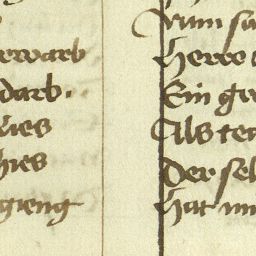 erwarb
darb.
lies
hies
gieng
Vnm sa
Herre
Ein gr
Als te
Der sel
Hat nu